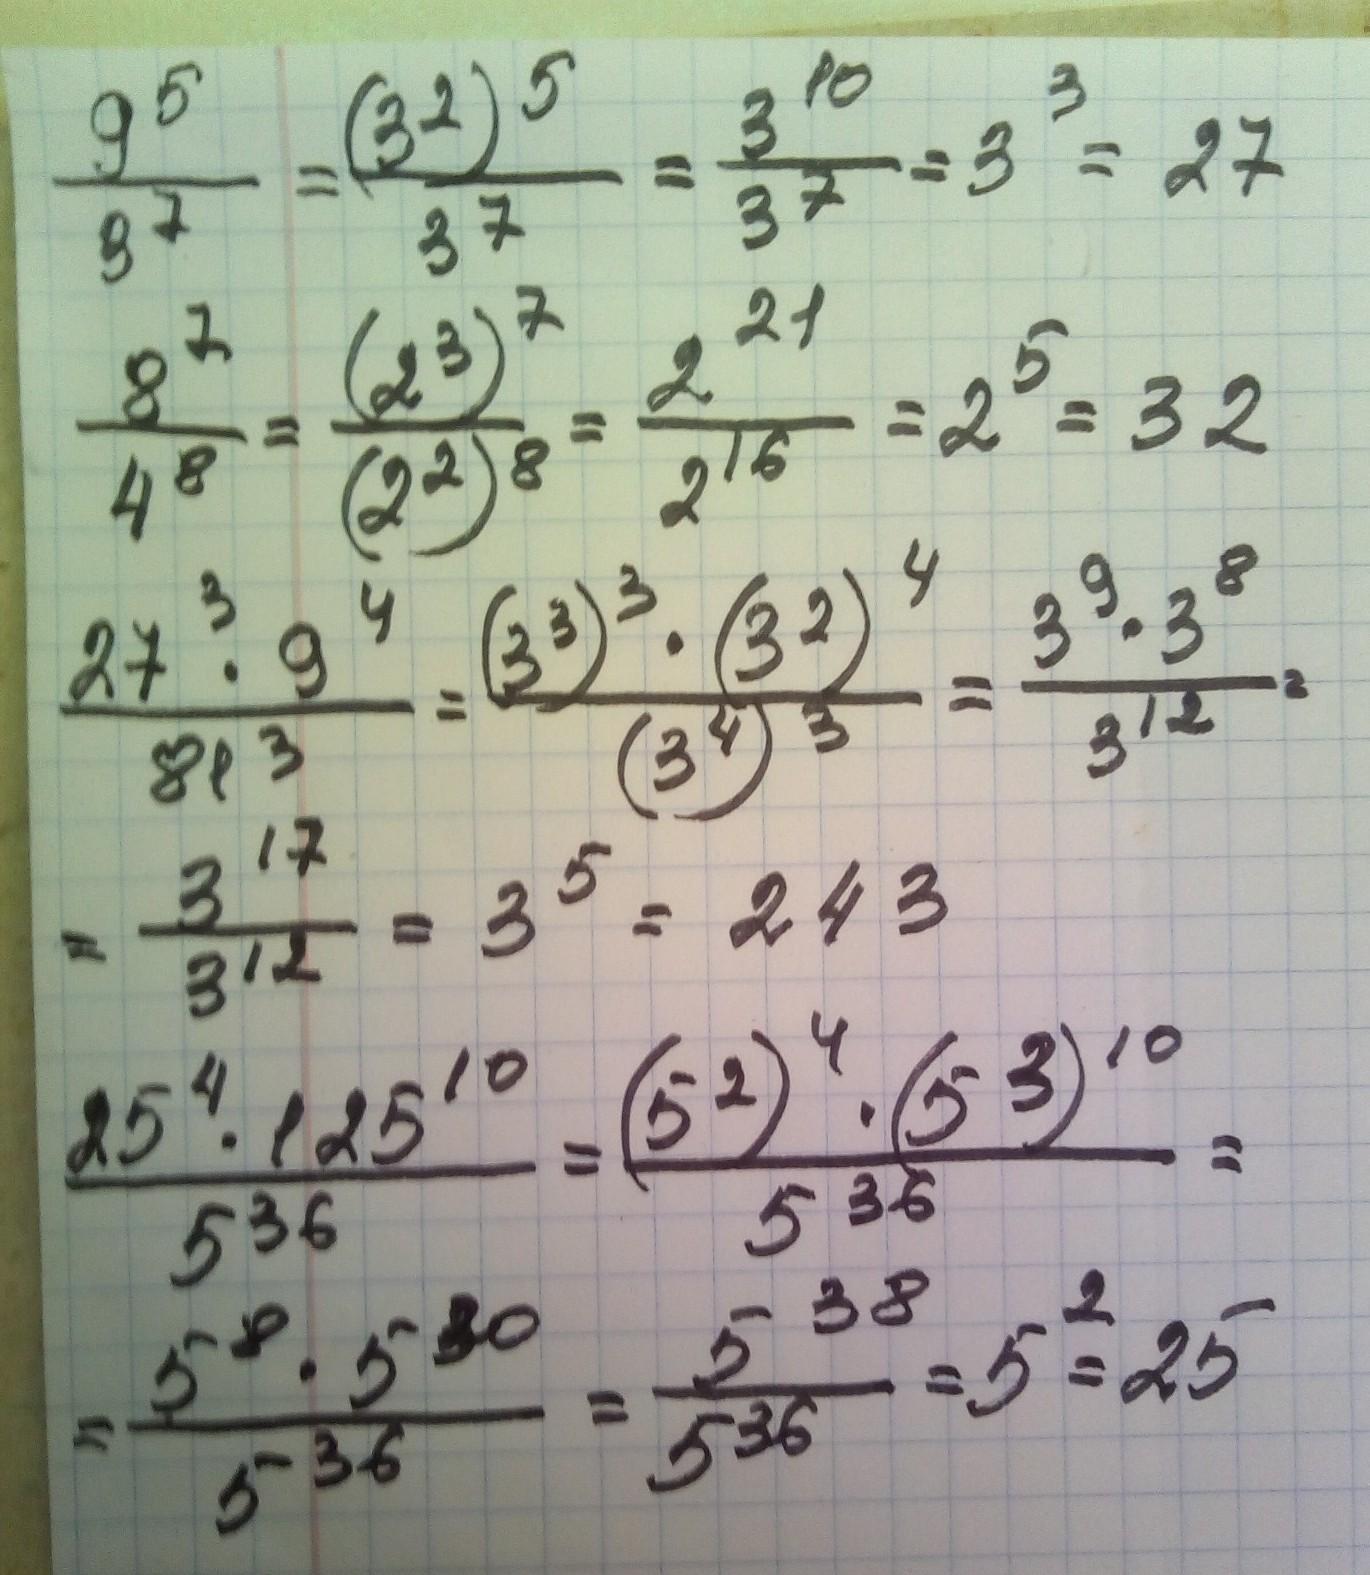 9^5/3^7 = (3^2)^5/3^7 = 3^10/3^7 = 3^3 = 27
8^7/4^8 = (2^3)^7/(2^2)^8 = 2^21/2^16 = 2^5 = 32
27^3 · 9^4/81^3 = (3^3)^3 · (3^2)^4/(3^4)^3 = 3^9 · 3^8/3^12 =
= 3^17/3^12 = 3^5 = 243
25^4 · 125^10/5^36 = (5^2)^4 · (5^3)^10/5^36 =
= 5^8 · 5^30/5^36 = 5^38/5^36 = 5^2 = 25